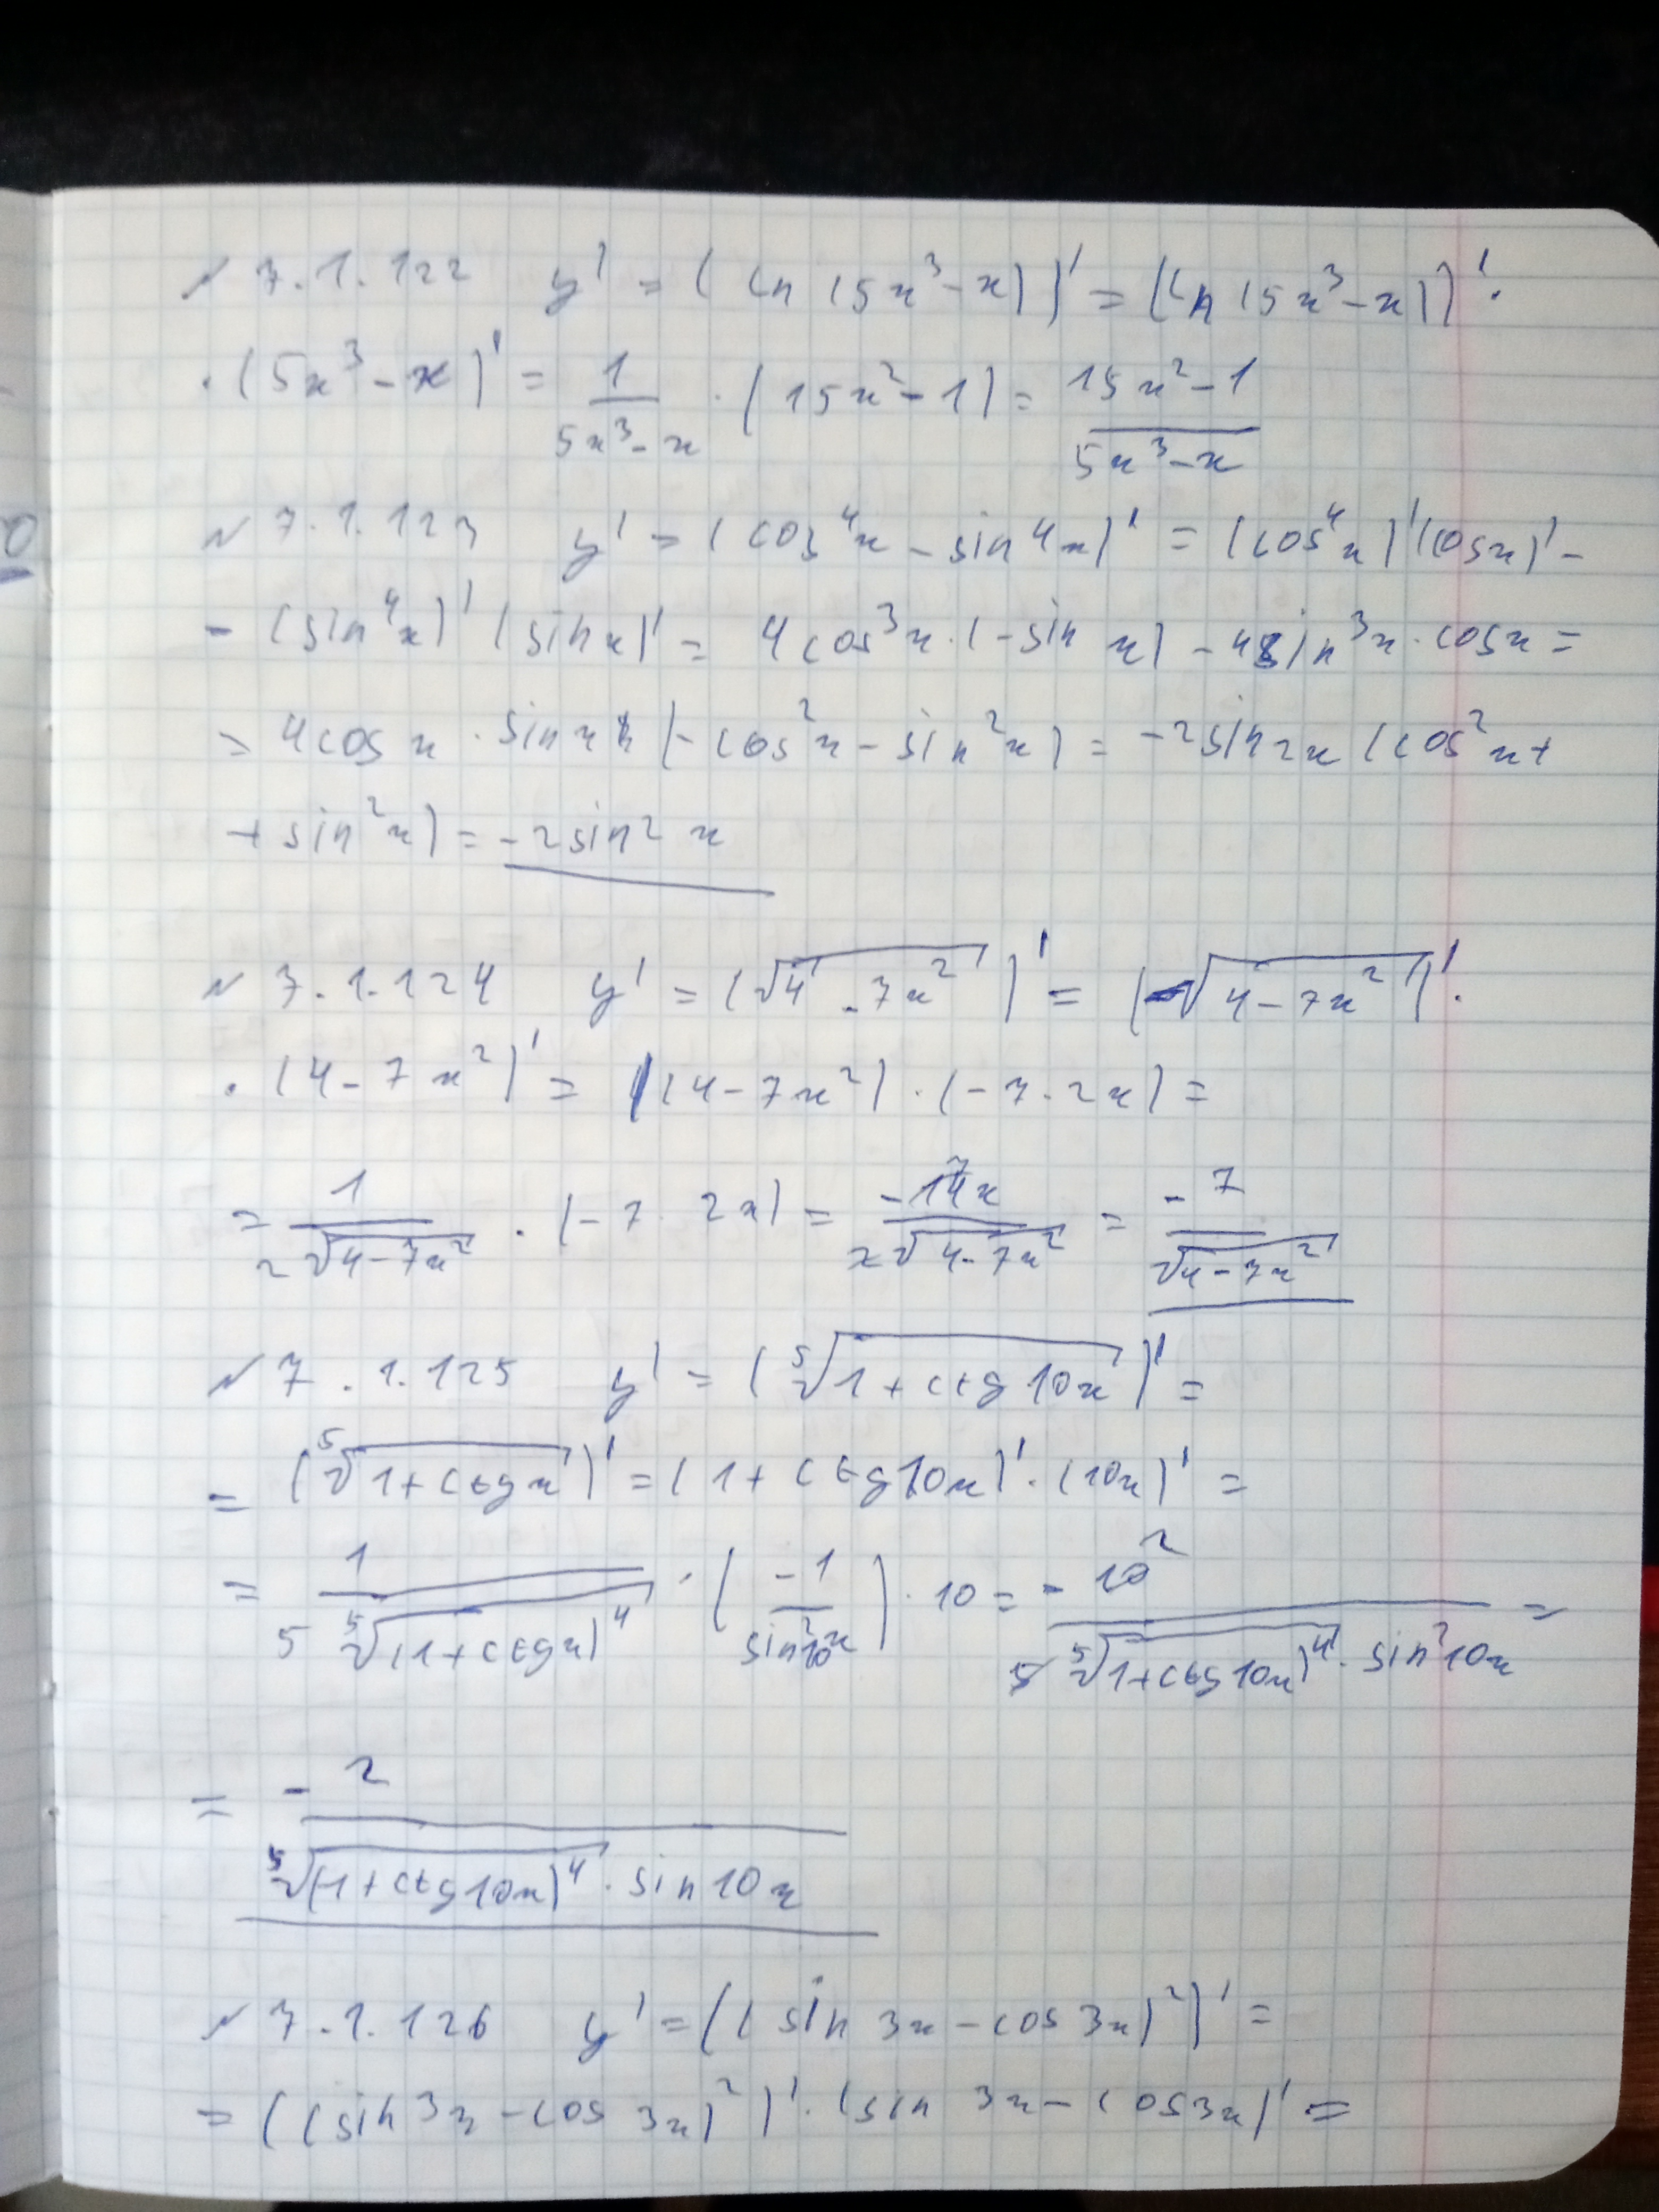 № 7.1.122 y' = (ln(5x³-x))' = (ln(5x³-x))' ·
· (5x³-x)' = 1/(5x³-x) · (15x²-1) = (15x²-1)/(5x³-x)
№ 7.1.123 y' = (cos⁴x - sin⁴x)' = (cos⁴x)'(cosx)' -
- (sin⁴x)' (sinx)' = 4cos³x·(-sin x) - 4sin³x·cosx =
= 4cos x · sin x (-cos²x - sin²x) = -2sin2x (cos²x +
+ sin²x) = -2sin2x
№ 7.1.124 y' = (√(4-7x²))' = (√(4-7x²))' ·
· (4-7x²)' = (4-7x²) · (-7·2x) =
= 1/(2√(4-7x²)) · (-7·2x) = -14x/(2√(4-7x²)) = -7/√(4-7x²)
№ 7.1.125 y' = (⁵√(1+ctg10x))' =
= (⁵√(1+ctgx))' = (1+ctg10x)'·(10x)' =
= 1/(5 ⁵√((1+ctgx)⁴)) · (-1/sin²10x) · 10 = -10/(5 ⁵√((1+ctg10x)⁴) · sin²10x) =
= -2/(⁵√((1+ctg10x)⁴) · sin10x)
№ 7.1.126 y' = ((sin 3x - cos 3x)²)' =
= ((sin3x - cos 3x)²)'·(sin 3x - cos3x)' =